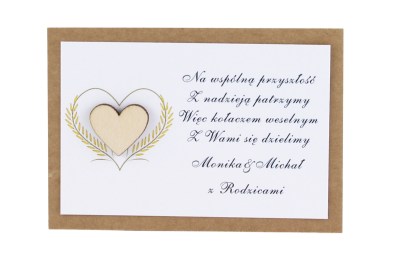 Na wspólną przyszłość
Z nadzieją patrzymy
Więc kołaczem weselnym
Z Wami się dzielimy
Monika & Michał
z Rodzicami